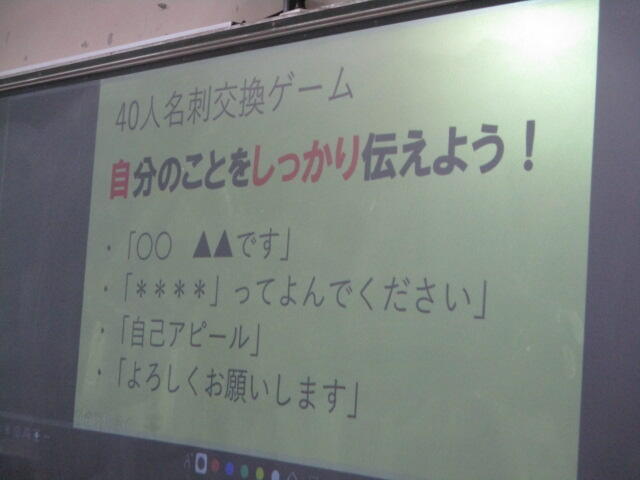 40人名刺交換ゲーム
自分のことをしっかり伝えよう！
・「○○　▲▲です」
・「＊＊＊＊」ってよんでください」
・「自己アピール」
・「よろしくお願いします」